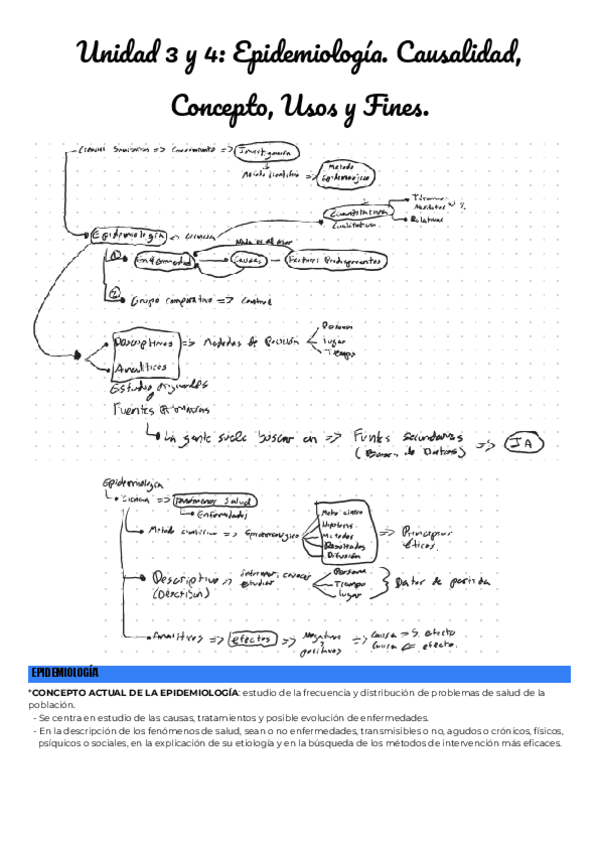 Unidad 3 y 4: Epidemiología. Causalidad,
Concepto, Usos y Fines.
Ciencias Sanitarias => Conocimiento => Investigación
Método Científico => Método Epidemiológico
Cuantitativa
Cualitativa
Relativas
Epidemiología Ciencia
Nada es al azar
① Enfermedad Causas Factores Predisponentes
② Grupo comparativo => Control
Descriptivos => Medidas de Posición
Persona
Lugar
Tiempo
Analíticos
Estudios originales
Fuentes Primarias
La gente suele buscar en => Fuentes Secundarias => IA
(Bases de Datos)
Epidemiología
Ciencia => Fenómenos Salud
Enfermedades
Método Científico => Epidemiológico
Hipótesis
Métodos
Resultados
Difusión
=> Principios
éticos.
Descriptivo => informar, conocer
(Describen) estudiar
Persona
Tiempo
Lugar
Datos de partida
Analíticos => efectos => Negativos
positivos
=> Causa => S. efecto
Causa efecto.
EPIDEMIOLOGÍA
*CONCEPTO ACTUAL DE LA EPIDEMIOLOGÍA: estudio de la frecuencia y distribución de problemas de salud de la
población.
- Se centra en estudio de las causas, tratamientos y posible evolución de enfermedades.
- En la descripción de los fenómenos de salud, sean o no enfermedades, transmisibles o no, agudos o crónicos, físicos,
psíquicos o sociales, en la explicación de su etiología y en la búsqueda de los métodos de intervención más eficaces.